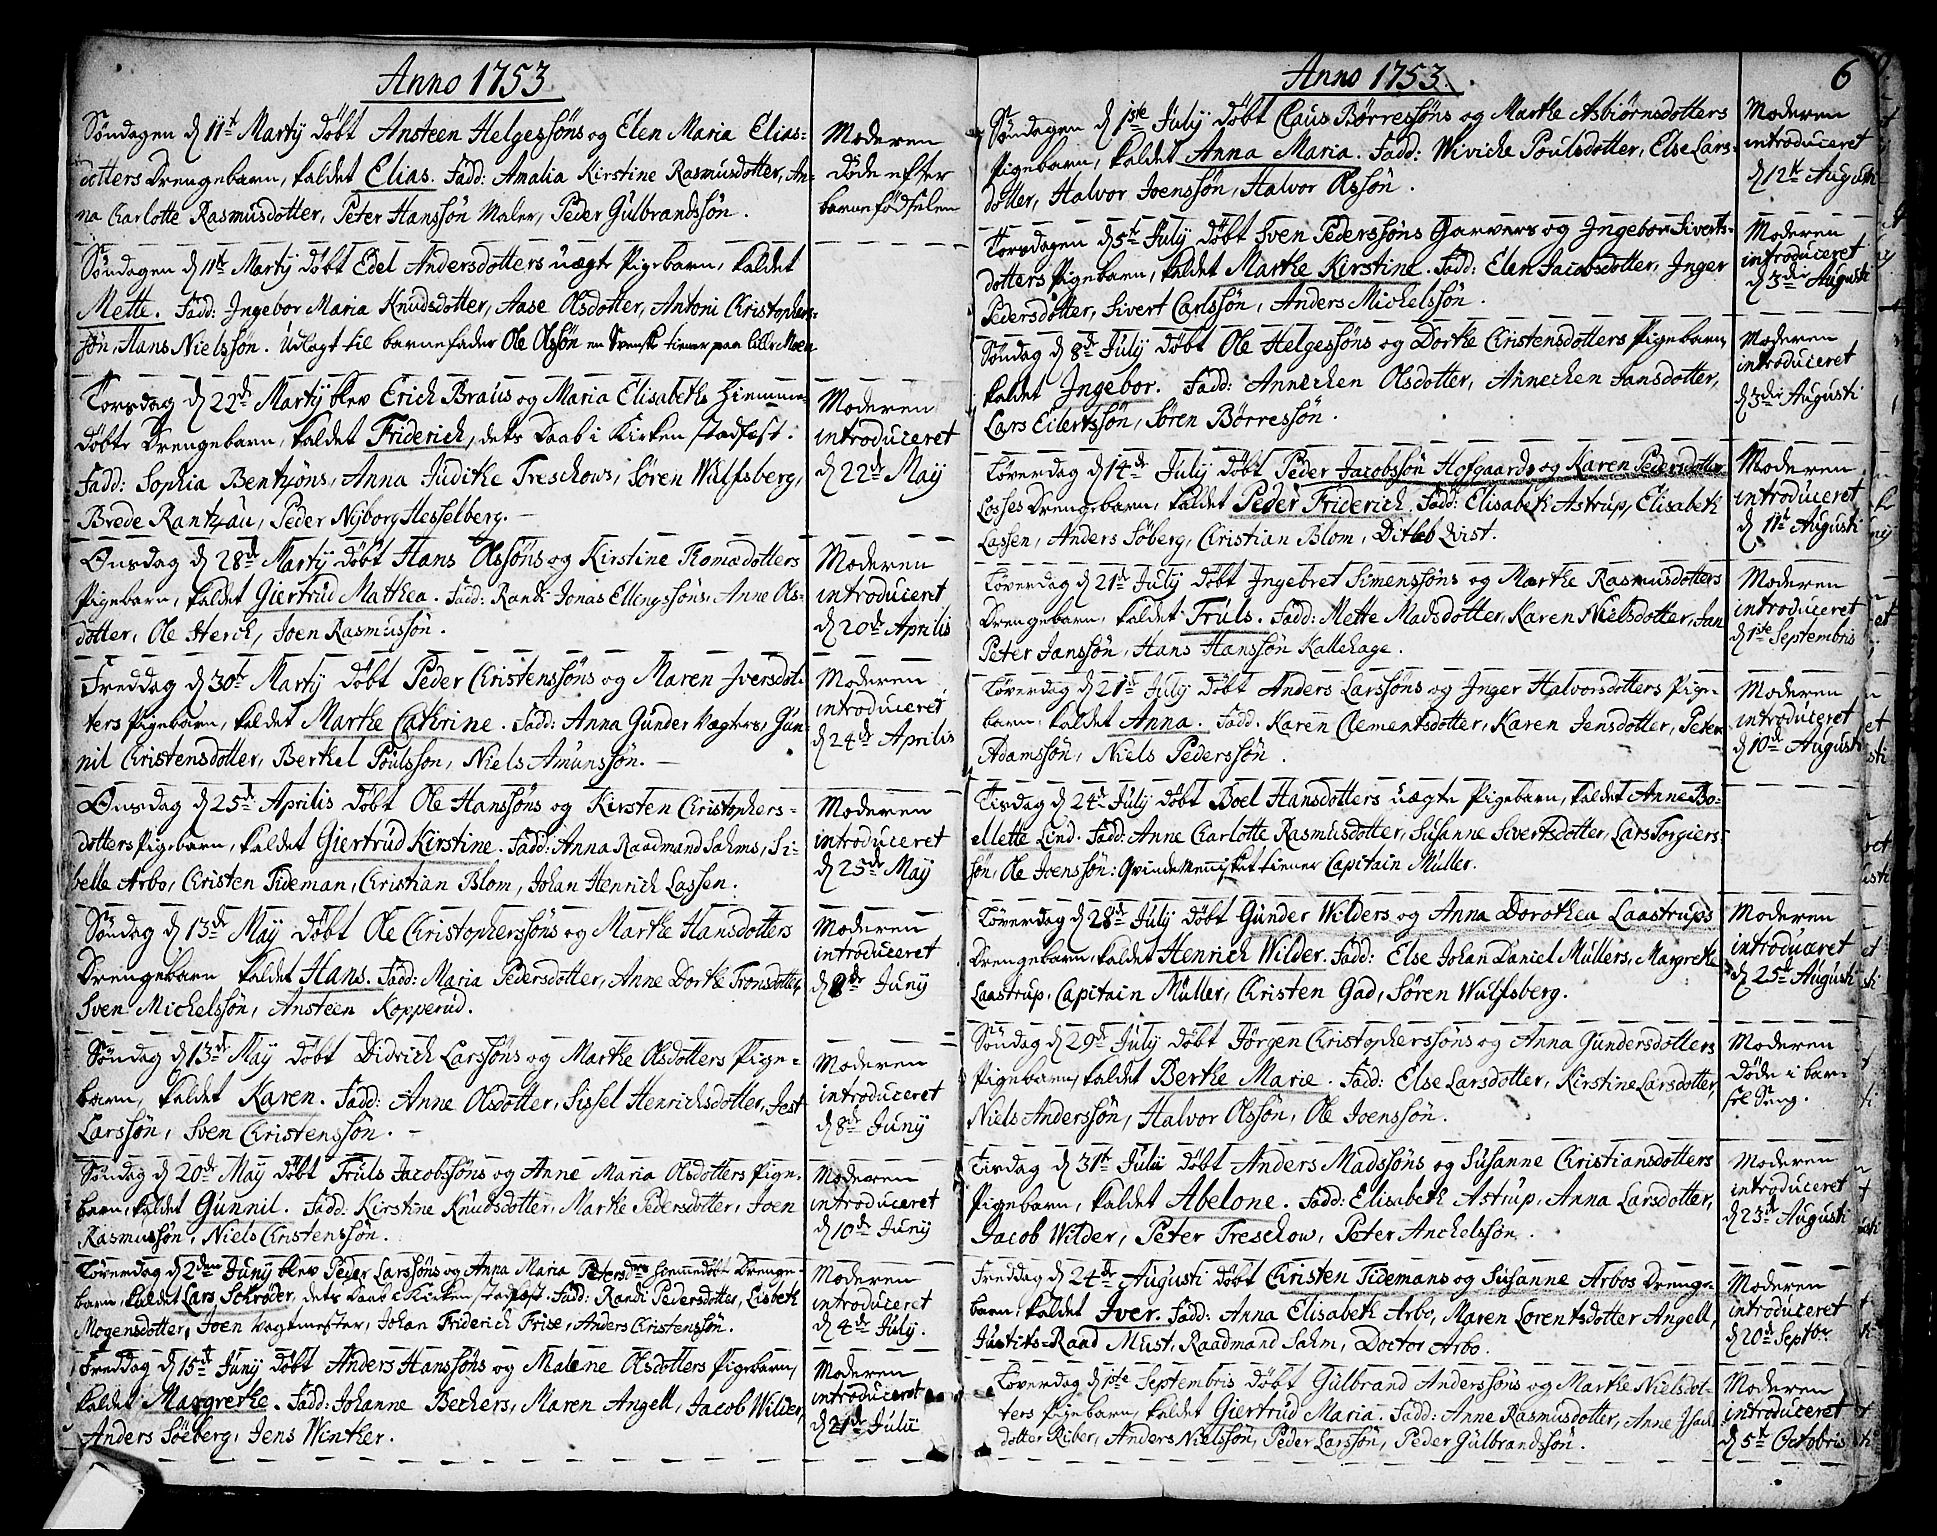 Anno 1753
Søndagen d 11te Martÿ døbt Ansteen Helgessøns og Elen Maria Elias-
dotters Drengebarn, kaldet Elias. Fadd: Amalia Kirstine Rasmusdotter, An-
na Charlotte Rasmusdotter, Peter Hanssøn Maler, Peder Gulbrandssøn.
Moderen
døde efter
barnefødselen
Søndagen d 11te Martÿ døbt Edel Andersdotters uægte Pigebarn, kaldet
Mette. Fadd: Ingebor Maria Knudsdotter, Aase Olsdotter, Antoni Christophers-
søn, Hans Nielssøn. Udlagt til barnefader Ole Olssøn en Svensk tiener paa lille Moen
Torsdag d 22de Martÿ blev Erich Braus og Maria Elisabeths Hiemme
døbte Drengebarn, kaldet Friderich, dets Daab i Kirken stadfæst.
Fadd: Sophia Bentzøns, Anna Judithe Treschows, Søren Wulfsberg,
Brede Rantzau, Peder Nÿborg Hesselberg.
Moderen
introduceret
d 22de Maÿ
Onsdag d 28de Martÿ døbt Hans Olssøns og Kirstine Thomædotters
Pigebarn, kaldet Giertrud Matthea. Fadd: Randi Jonas Ellingssøns, Anne Ols-
dotter, Ole Sterch, Joen Rasmussøn.
Moderen
introduceret
d 20de Aprilis
Freddag d 30te Martÿ døbt Peder Christenssøns og Maren Iversdot-
ters Pigebarn, kaldet Marthe Cathrine. Fadd: Anna Gunder Vægters, Gun-
nil Christensdotter, Berthel Poulsson, Niels Amunssøn.
Moderen
introduceret
d 24de Aprilis
Onsdag d 25de Aprilis døbt Ole Hanssøns og Kirsten Christophers-
dotters Pigebarn, kaldet Giertrud Kirstine. Fadd: Anna Raadmand Sahms, Si-
belle Arbo, Christen Tideman, Christian Blom, Johan Henrich Lassen.
Moderen
introduceret
d 25de Maÿ
Søndag d 13de Maÿ døbt Ole Christopherssøns og Marthe Hansdotters
Drengebarn kaldet Hans. Fadd: Maria Pedersdotter, Anne Dorthe Tronsdotter,
Sven Michelssøn, Ansteen Kopperud.
Moderen
introduceret
d 8de Junÿ
Søndag d 13de Maÿ døbt Didrich Larssøns og Marthe Olsdotters Pige-
barn, kaldet Karen. Fadd: Anne Olsdotter, Sissel Henrichsdotter, Jest
Larssøn, Sven Christenssøn.
Moderen
introduceret
d 8de Junÿ
Søndag d 20de Maÿ døbt Truls Jacobssøns og Anne Maria Olsdotters Pige-
barn, kaldet Gunnil. Fadd: Kirstine Knudsdotter, Marthe Pedersdotter, Joen
Rasmussøn, Niels Christenssøn.
Moderen
introduceret
d 10de Junÿ
Løverdag d 2den Junÿ blev Peder Larssøns og Anna Maria Petersdrs hiemmedøbt Drenge-
barn, kaldet Lars Schrøder, dets Daab i Kirken stadfæst. Fadd: Randi Pedersdotter, Lisbeth
Mogensdotter, Joen Vagtmester, Johan Friderich Frise, Anders Christenssøn.
Moderen
introduceret
d 4de Julÿ.
Freddag d 15de Junÿ døbt Anders Hanssøns og Malene Olsdotters Pigebarn,
kaldet Margrethe. Fadd: Johanne Bechers, Maren Angell, Jacob Wilder,
Anders Søeberg, Jens Winther.
Moderen
introduceret
d 21de Julii
Anno 1753.
6
Søndagen d 1ste Julÿ døbt Claus Børressøns og Marthe Asbiørnsdotters
Pigebarn, kaldet Anna Maria. Fadd: Wiviche Poulsdotter, Else Lars-
dotter, Halvor Joenssøn, Halvor Olssøn.
Moderen
introduceret
d 12te Augusti
Torsdagen d 5te Julÿ døbt Sven Pederssøns Garvers og Ingebor Siverts-
dotters Pigebarn, kaldet Marthe Kirstine. Fadd: Elen Jacobsdotter, Inger
Pedersdotter, Sivert Carlssøn, Anders Michelssøn.
Moderen
introduceret
d 3die Augusti
Søndag d 8de Julÿ døbt Ole Helgessøns og Dorthe Christensdotters Pigebarn,
kaldet Ingebor. Fadd: Annechen Olsdotter, Annechen Jansdotter,
Lars Eilertssøn, Søren Børressøn.
Moderen
introduceret
d 3die Augusti
Løverdag d 14de Julÿ døbt Peder Jacobssøn Hofgaards og Karen Pedersdotter
Losses Drengebarn, kaldet Peder Friderich. Fadd: Elisabeth Astrup, Elisabeth
Lassen, Anders Søberg, Christian Blom, Ditleb Qvist.
Moderen
introduceret
d 11te Augusti
Løverdag d 21de Julÿ døbt Ingebret Simenssøns og Marthe Rasmusdotters
Drengebarn, kaldet Truls. Fadd: Mette Madsdotter, Karen Nielsdotter, Jan
Peter Janssøn, Hans Hanssøn Kallehage.
Moderen
introduceret
d 1ste Septembris
Løverdag d 21de Julÿ døbt Anders Larssøns og Inger Halvorsdotters Pige-
barn, kaldet Anna. Fadd. Karen Clementsdotter, Karen Jensdotter, Peter
Adamssøn, Niels Pederssøn.
Moderen
introduceret
d 10de Augusti
Tisdag d 24de Julÿ døbt Boel Hansdotters uægte Pigebarn, kaldet Anne Bo-
ellette Lind. Fadd: Anne Charlotte Rasmusdotter, Susanne Sivertsdotter, Lars Torgiers-
søn, Ole Joenssøn: Qvindemennisket tiener Capitain Müller.
Løverdag d 28de Julÿ døbt Gunder Wilders og Anna Dorothea Laastrups
Drengebarn, kaldet Henrich Wilder. Fadd: Else Johan Daniel Müllers, Margrethe
Laastrup, Capitain Müller, Christen Gad, Søren Wulfsberg.
Moderen
introduceret
d 25de Augusti
Søndag d 29de Julÿ døbt Jørgen Christopherssøns og Anna Gundersdotters
Pigebarn, kaldet Berthe Marie. Fadd: Else Larsdotter, Kirstine Larsdotter,
Niels Anderssøn, Halvor Olssøn, Ole Joenssøn.
Moderen
døde i bar-
sel Seng.
Tisdag d 31te Julii døbt Anders Madssøns og Susanne Christiansdotters
Pigebarn, kaldet Abelone. Fadd: Elisabeth Astrup, Anna Larsdotter,
Jacob Wilder, Peter Treschow, Peter Anchelssøn.
Moderen
introduceret
d 23de Augusti
Freddag d 24de Augusti døbt Christen Tidemans og Susanne Arbos Drenge-
barn, kaldet Iver. Fadd: Anna Elisabeth Arbo, Maren Lorentsdotter Angell,
Justits-Raad Must, Raadmand Sahm, Doctor Arbo.
Moderen
introduceret
d 20de Septbr
Løverdag d 1ste Septembris døbt Gulbrand Anderssøns og Marthe Nielsdot-
ters Pigebarn, kaldet Giertrud Maria. Fadd: Anne Rasmusdotter, Anne Isach-
dotter Riber, Anders Nielssøn, Peder Larssøn, Peder Gulbrandssøn.
Moderen
introduceret
d 5te Octobris